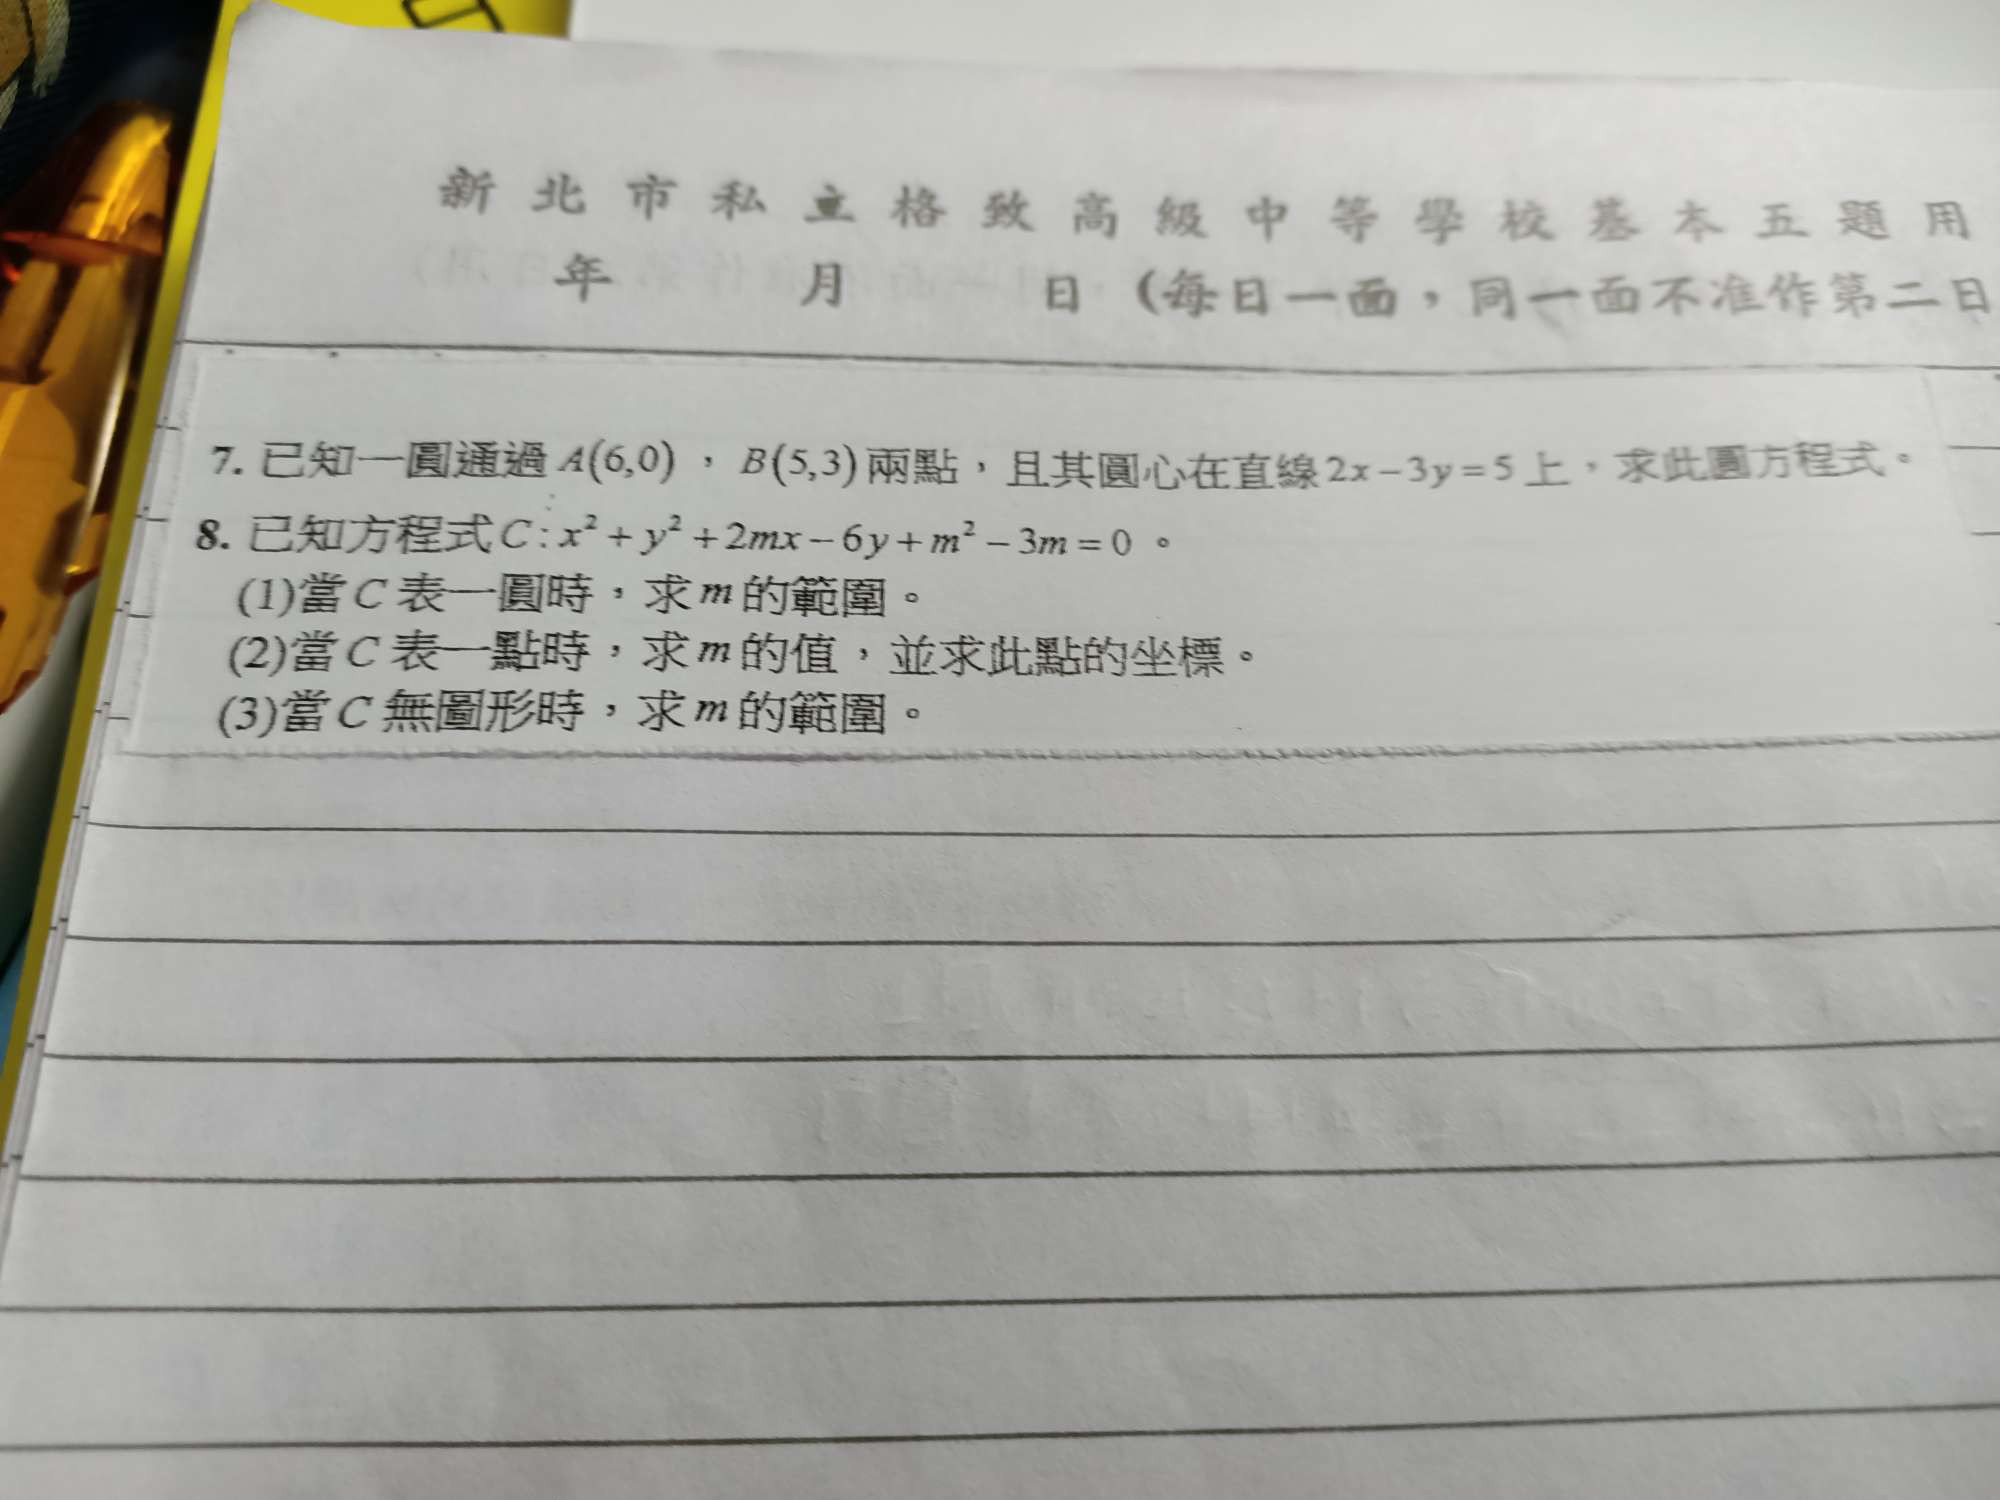 新北市私立格致高級中等學校基本五題用
年 月 日（每日一面，同一面不准作第二日
7. 已知一圓通過 A(6,0)，B(5,3) 兩點，且其圓心在直線 2x－3y＝5 上，求此圓方程式。
8. 已知方程式 C : x² + y² + 2mx − 6y + m² − 3m = 0。
(1)當 C 表一圓時，求 m 的範圍。
(2)當 C 表一點時，求 m 的值，並求此點的坐標。
(3)當 C 無圖形時，求 m 的範圍。